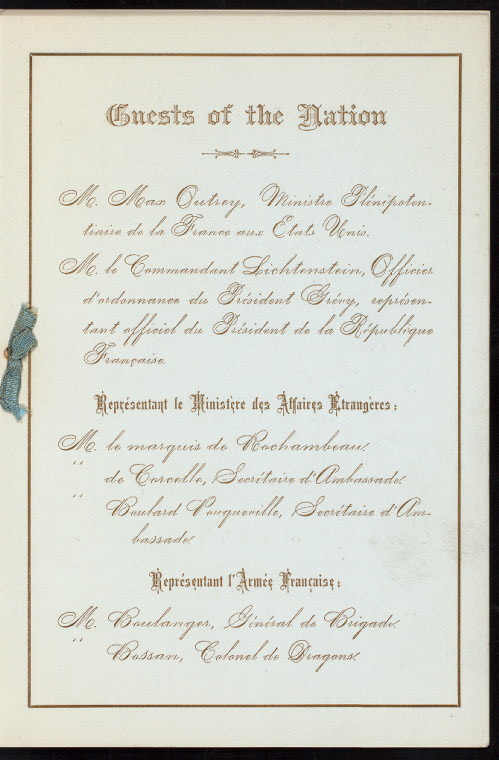 Guests of the Nation
M. Max Outrey, Ministre Plénipoten-
tiaire de la France aux États Unis.
M. le Commandant Lichtenstein, Officier
d'ordonnance du Président Grévy, représen-
tant officiel du Président de la République
Française.
Représentant le Ministère des Affaires Étrangères:
M. le marquis de Rochambeau.
" de Corcelle, Secrétaire d'Ambassade.
" Boulard Pouqueville, Secrétaire d'Am-
bassade.
Représentant l'Armée Française:
M. Boulanger, Général de Brigade.
" Bossan, Colonel de Dragons.